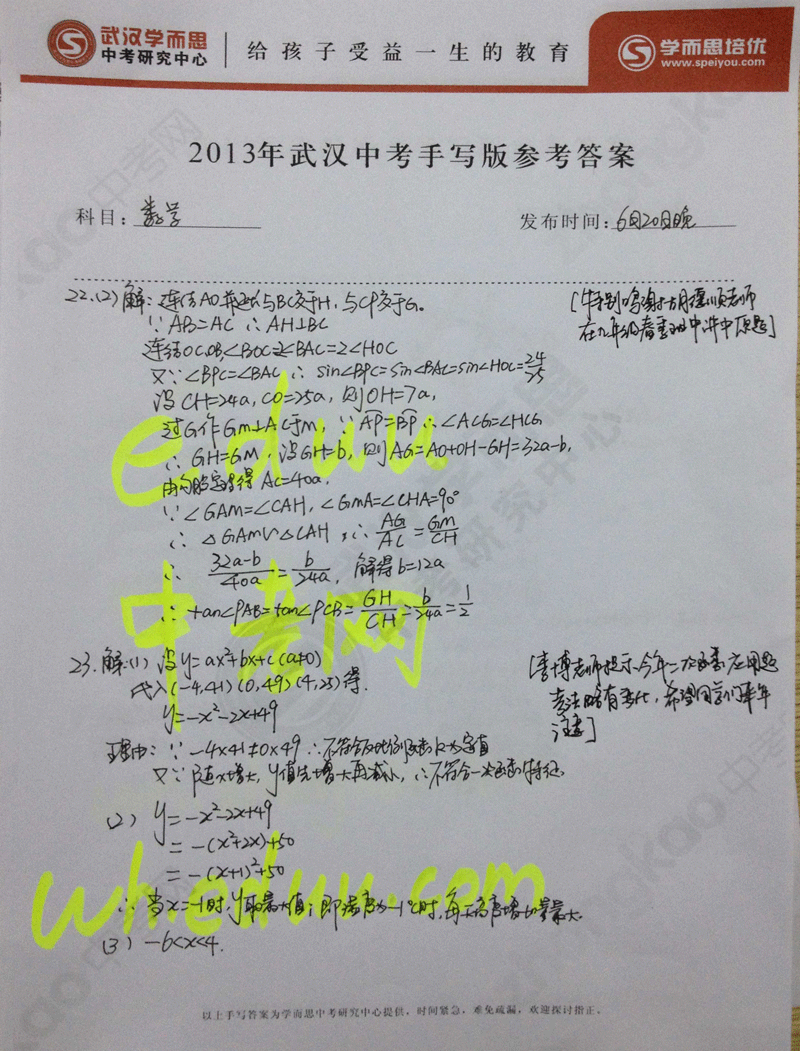 武汉学而思
中考研究中心
给孩子受益一生的教育
学而思培优
www.speiyou.com
2013年武汉中考手写版参考答案
科目：数学
发布时间：6月20日晚
22.(2)解：连结AO并延长与BC交于H，与CP交于G。
∵AB=AC ∴AH⊥BC
连结OC,OB,∠BOC=2∠BAC=2∠HOC
又∵∠BPC=∠BAC ∴ sin∠BPC=sin∠BAC=sin∠HOC=24/25
设CH=24a,CO=25a,则OH=7a,
过G作GM⊥AC于M，∵AP=BP ∴∠ACG=∠HCG
∴GH=GM，设GH=b，则AG=AO+OH-GH=32a-b,
由勾股定理得AC=40a,
∵∠GAM=∠CAH,∠GMA=∠CHA=90°
∴△GAM∽△CAH，∴AG/AC=GM/CH
∴ 32a-b/40a=b/24a，解得b=12a
∴tan∠PAB=tan∠PCB=GH/CH=b/24a=1/2
[特别鸣谢胡德顺老师
在九年级春季班中讲中原题]
23.解:(1)设y=ax²+bx+c(a≠0)
代入(-4,41)(0,49)(4,25)得.
y=-x²-2x+49
理由：∵-4×41≠0×49∴不符合反比例函数k为定值
又∵随x增大，y值先增大再减小，∴不符合一次函数特征.
[老师提示,今年二次函数应用题
考法略有变化，希望同学们来年
注意]
(2) y=-x²-2x+49
=-(x²+2x)+50
=-(x+1)²+50
∴当x=-1时，y取最大值；即温度为-1℃时，每天高度增长量最大.
(3) -6<x<4.
以上手写答案为学而思中考研究中心提供，时间紧急，难免疏漏，欢迎探讨指正。
eduu
中考网
wh.eduu.com